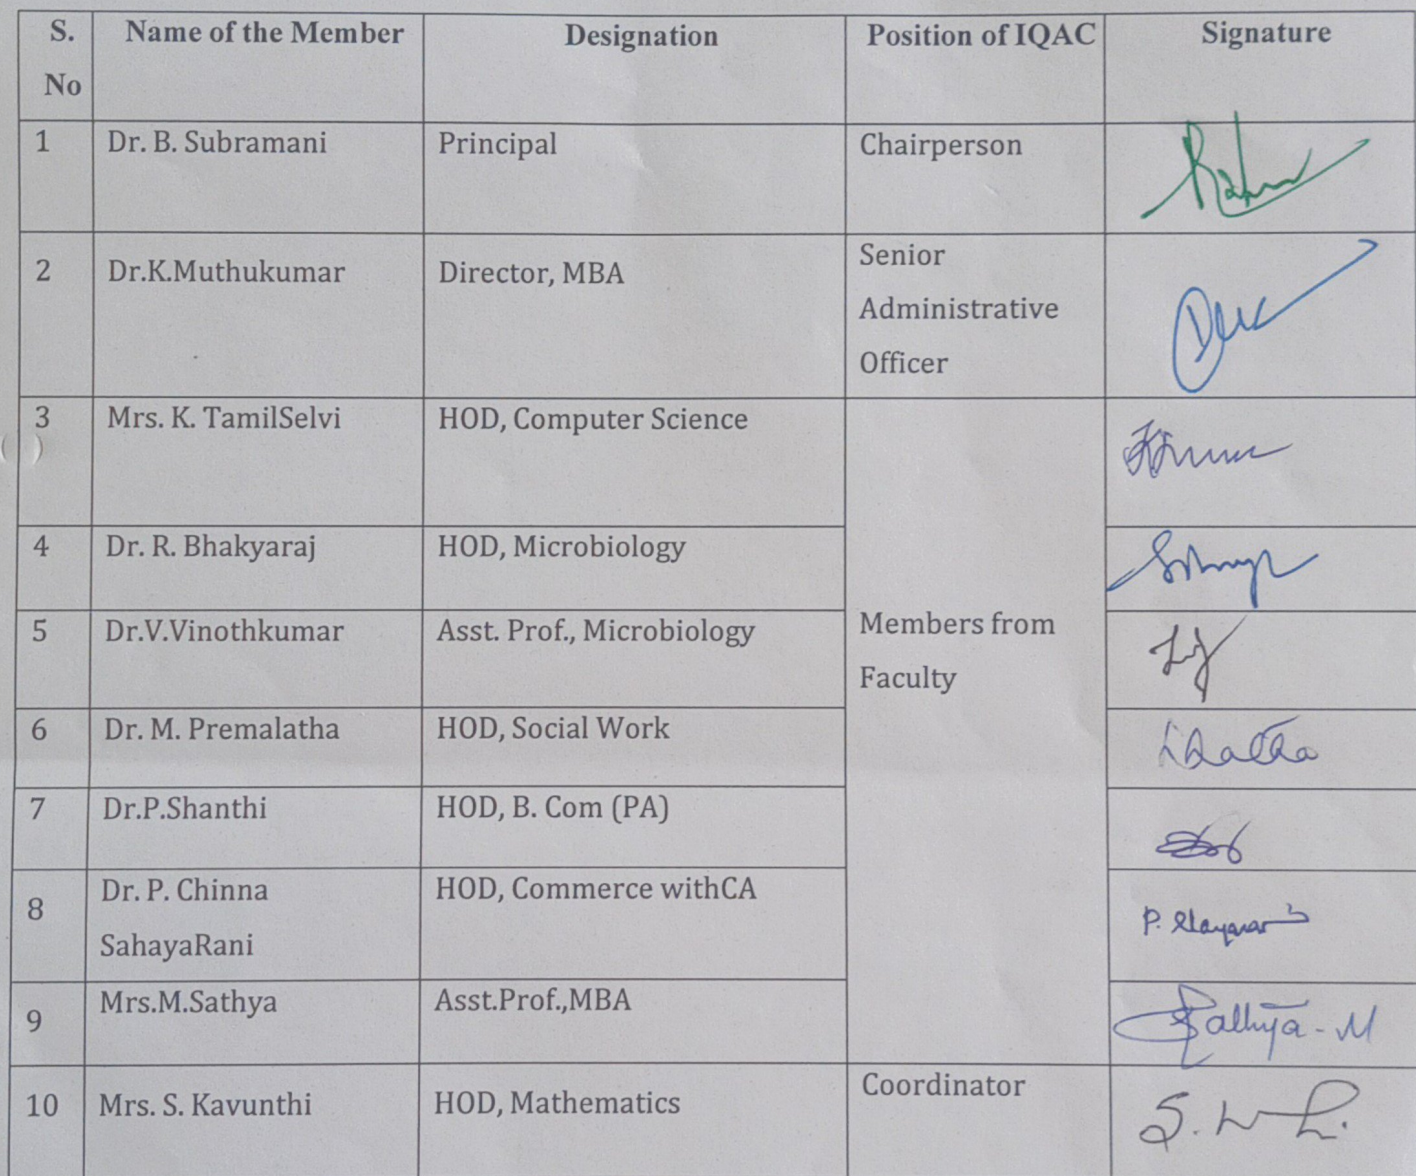 S. No Name of the Member Designation Position of IQAC Signature
1 Dr. B. Subramani Principal Chairperson
2 Dr.K.Muthukumar Director, MBA Senior Administrative Officer
3 Mrs. K. TamilSelvi HOD, Computer Science
4 Dr. R. Bhakyaraj HOD, Microbiology
5 Dr.V.Vinothkumar Asst. Prof., Microbiology Members from Faculty
6 Dr. M. Premalatha HOD, Social Work
7 Dr.P.Shanthi HOD, B. Com (PA)
8 Dr. P. Chinna SahayaRani HOD, Commerce withCA
9 Mrs.M.Sathya Asst.Prof.,MBA Sathya - M
10 Mrs. S. Kavunthi HOD, Mathematics Coordinator